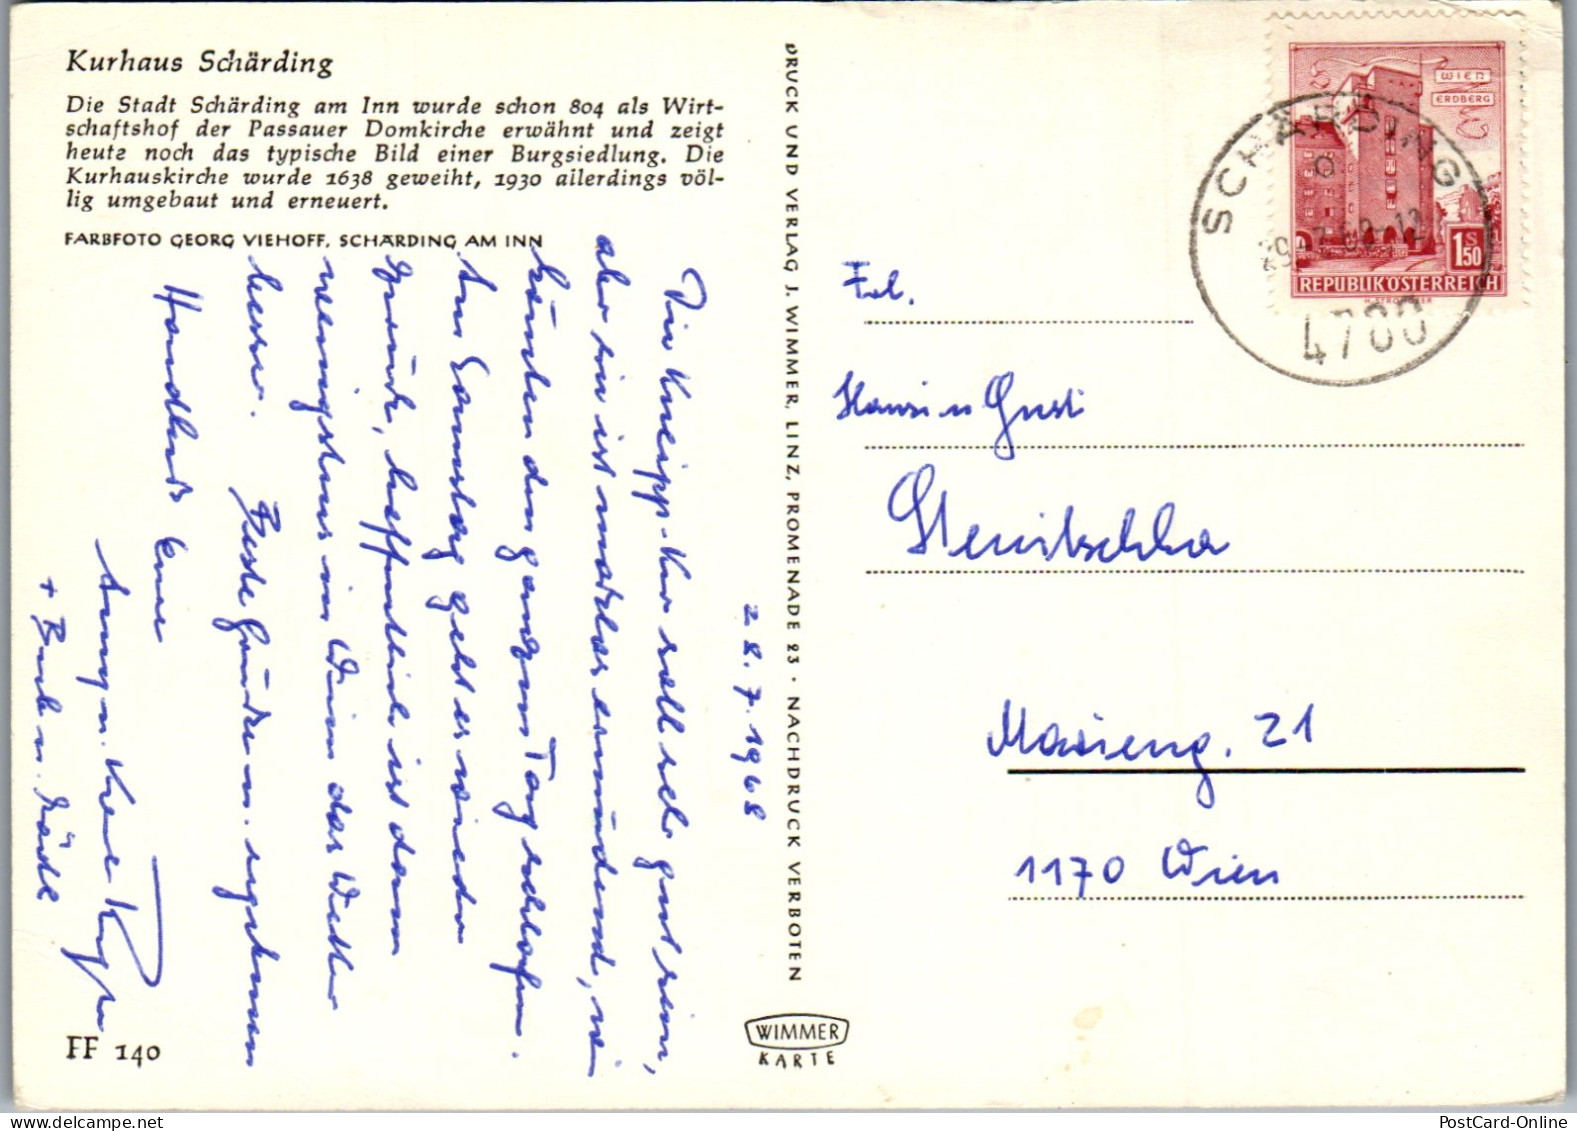 Kurhaus Schärding
Die Stadt Schärding am Inn wurde schon 804 als Wirt-
schaftshof der Passauer Domkirche erwähnt und zeigt
heute noch das typische Bild einer Burgsiedlung. Die
Kurhauskirche wurde 1638 geweiht, 1930 allerdings völ-
lig umgebaut und erneuert.
FARBFOTO GEORG VIEHOFF, SCHÄRDING AM INN
28.7.1968
Die Kneipp-Kur soll sehr gut sein,
aber sie ist machbar ermüdend, wir
könnten den ganzen Tag schlafen.
Am Samstag geht es wieder
hoffentlich ist dann
wenigstens in Wien das Wetter
besser. Beste Grüße u. ergebenen
Handkuß Eure
+ Bub u. Mädi
FF 140
DRUCK UND VERLAG J. WIMMER, LINZ, PROMENADE 23 · NACHDRUCK VERBOTEN
WIMMER
KARTE
WIEN
ERDBERG
1 S 50
REPUBLIK ÖSTERREICH
SCHÄRDING
4780
Fol.
Hansi u Gusti
Marieng. 21
1170 Wien
PostCard-Online